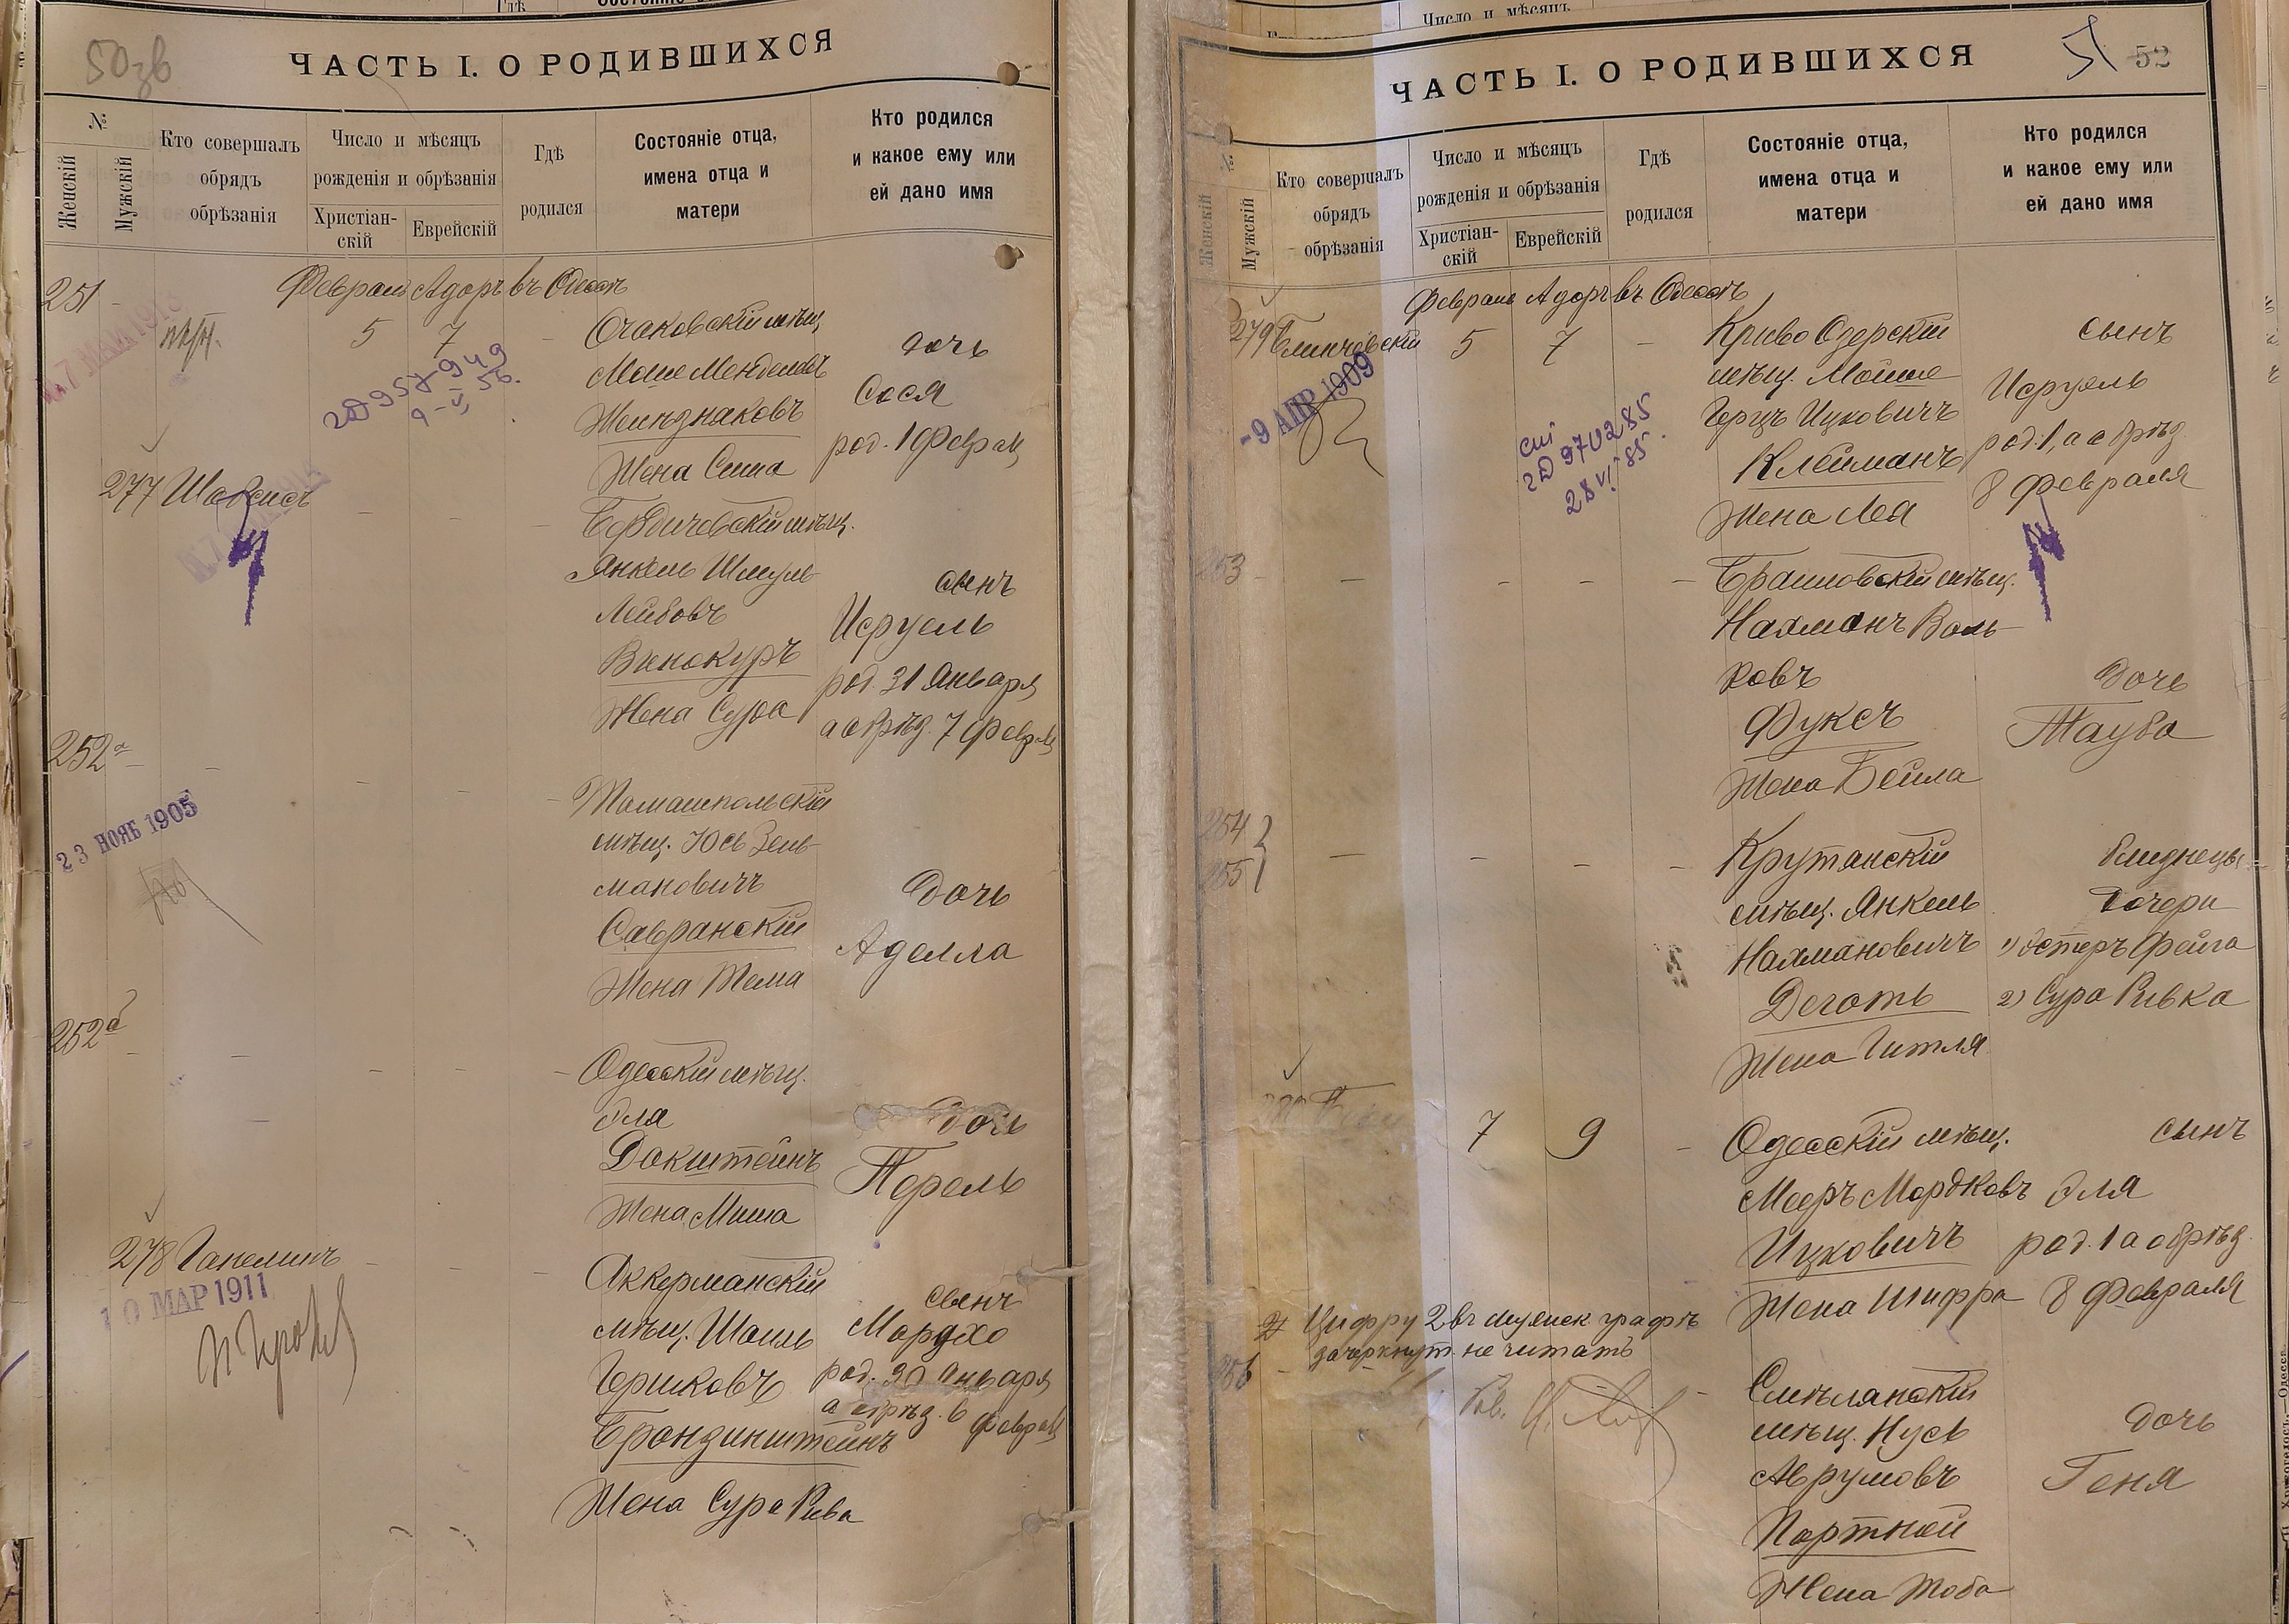 50зв
ЧАСТЬ I. О РОДИВШИХСЯ
№
Женскій
Мужскій
Кто совершалъ
обрядъ
обрѣзанія
Число и мѣсяцъ
рожденія и обрѣзанія
Христіан-
скій
Еврейскій
Гдѣ
родился
Состояніе отца,
имена отца и
матери
Кто родился
и какое ему или
ей дано имя
Февраль Адоръ въ Одессѣ
251 - 5 7 - Очаковскій мѣщ.
Моше Менделевъ
Желѣзнаковъ
Жена Сима
дочь
Сося
род. 1 Февраля
2D 957949
9-VI 56.
277 Шаевисъ - - - Бердичевскій мѣщ.
Янкель Шмуль
Лейбовъ
Винокуръ
Жена Сура
сынъ
Исруель
род. 31 Января
а обрѣз. 7 Февраля
252а - - - - - Томашпольскій
мѣщ. Юсь Зель-
мановичъ
Савранскій
Жена Тема
дочь
Аделла
23 НОЯБ 1905
252б - - - - - Одесскій мѣщ.
Эля
Докштейнъ
Жена Миша
дочь
Перель
278 Ганелинъ - - - Аккерманскій
мѣщ. Шоиль
Гершковъ
Бронзинштейнъ
Жена Сура Рива
сынъ
Мордхо
род. 30 Января
а обрѣз. 6 Февраля
10 МАР 1911
51 52
ЧАСТЬ I. О РОДИВШИХСЯ
№
Женскій
Мужскій
Кто совершалъ
обрядъ
обрѣзанія
Число и мѣсяцъ
рожденія и обрѣзанія
Христіан-
скій
Еврейскій
Гдѣ
родился
Состояніе отца,
имена отца и
матери
Кто родился
и какое ему или
ей дано имя
Февраль Адоръ въ Одессѣ
279 Блинчевскій 5 7 - Криво Озерскій
мѣщ. Мойше
Герцъ Ицковичъ
Клейманъ
Жена Лея
сынъ
Исруель
род. 1, а обрѣз.
8 Февраля
-9 АПР 1909
2D 970285
28 VI 85.
253 - - - - - Браиловскій мѣщ.
Нахманъ Воль-
ковъ
Фуксъ
Жена Бейла
дочь
Тауба
254
255 - - - - Крутянскій
мѣщ. Янкель
Нахмановичъ
Деготь
Жена Гитля
близнецы
дочери
1) Эстеръ Фейга
2) Сура Ривка
280 7 9 - Одесскій мѣщ.
Мееръ Мордковъ
Ицковичъ
Жена Шифра
сынъ
Эля
род. 1 а обрѣз.
8 Февраля
Цифру 2 въ мужск графѣ
зачеркнут. не читать
256 - - Смѣлянскій
мѣщ. Нусь
Аврумовъ
Портной
Жена Тоба
дочь
Геня